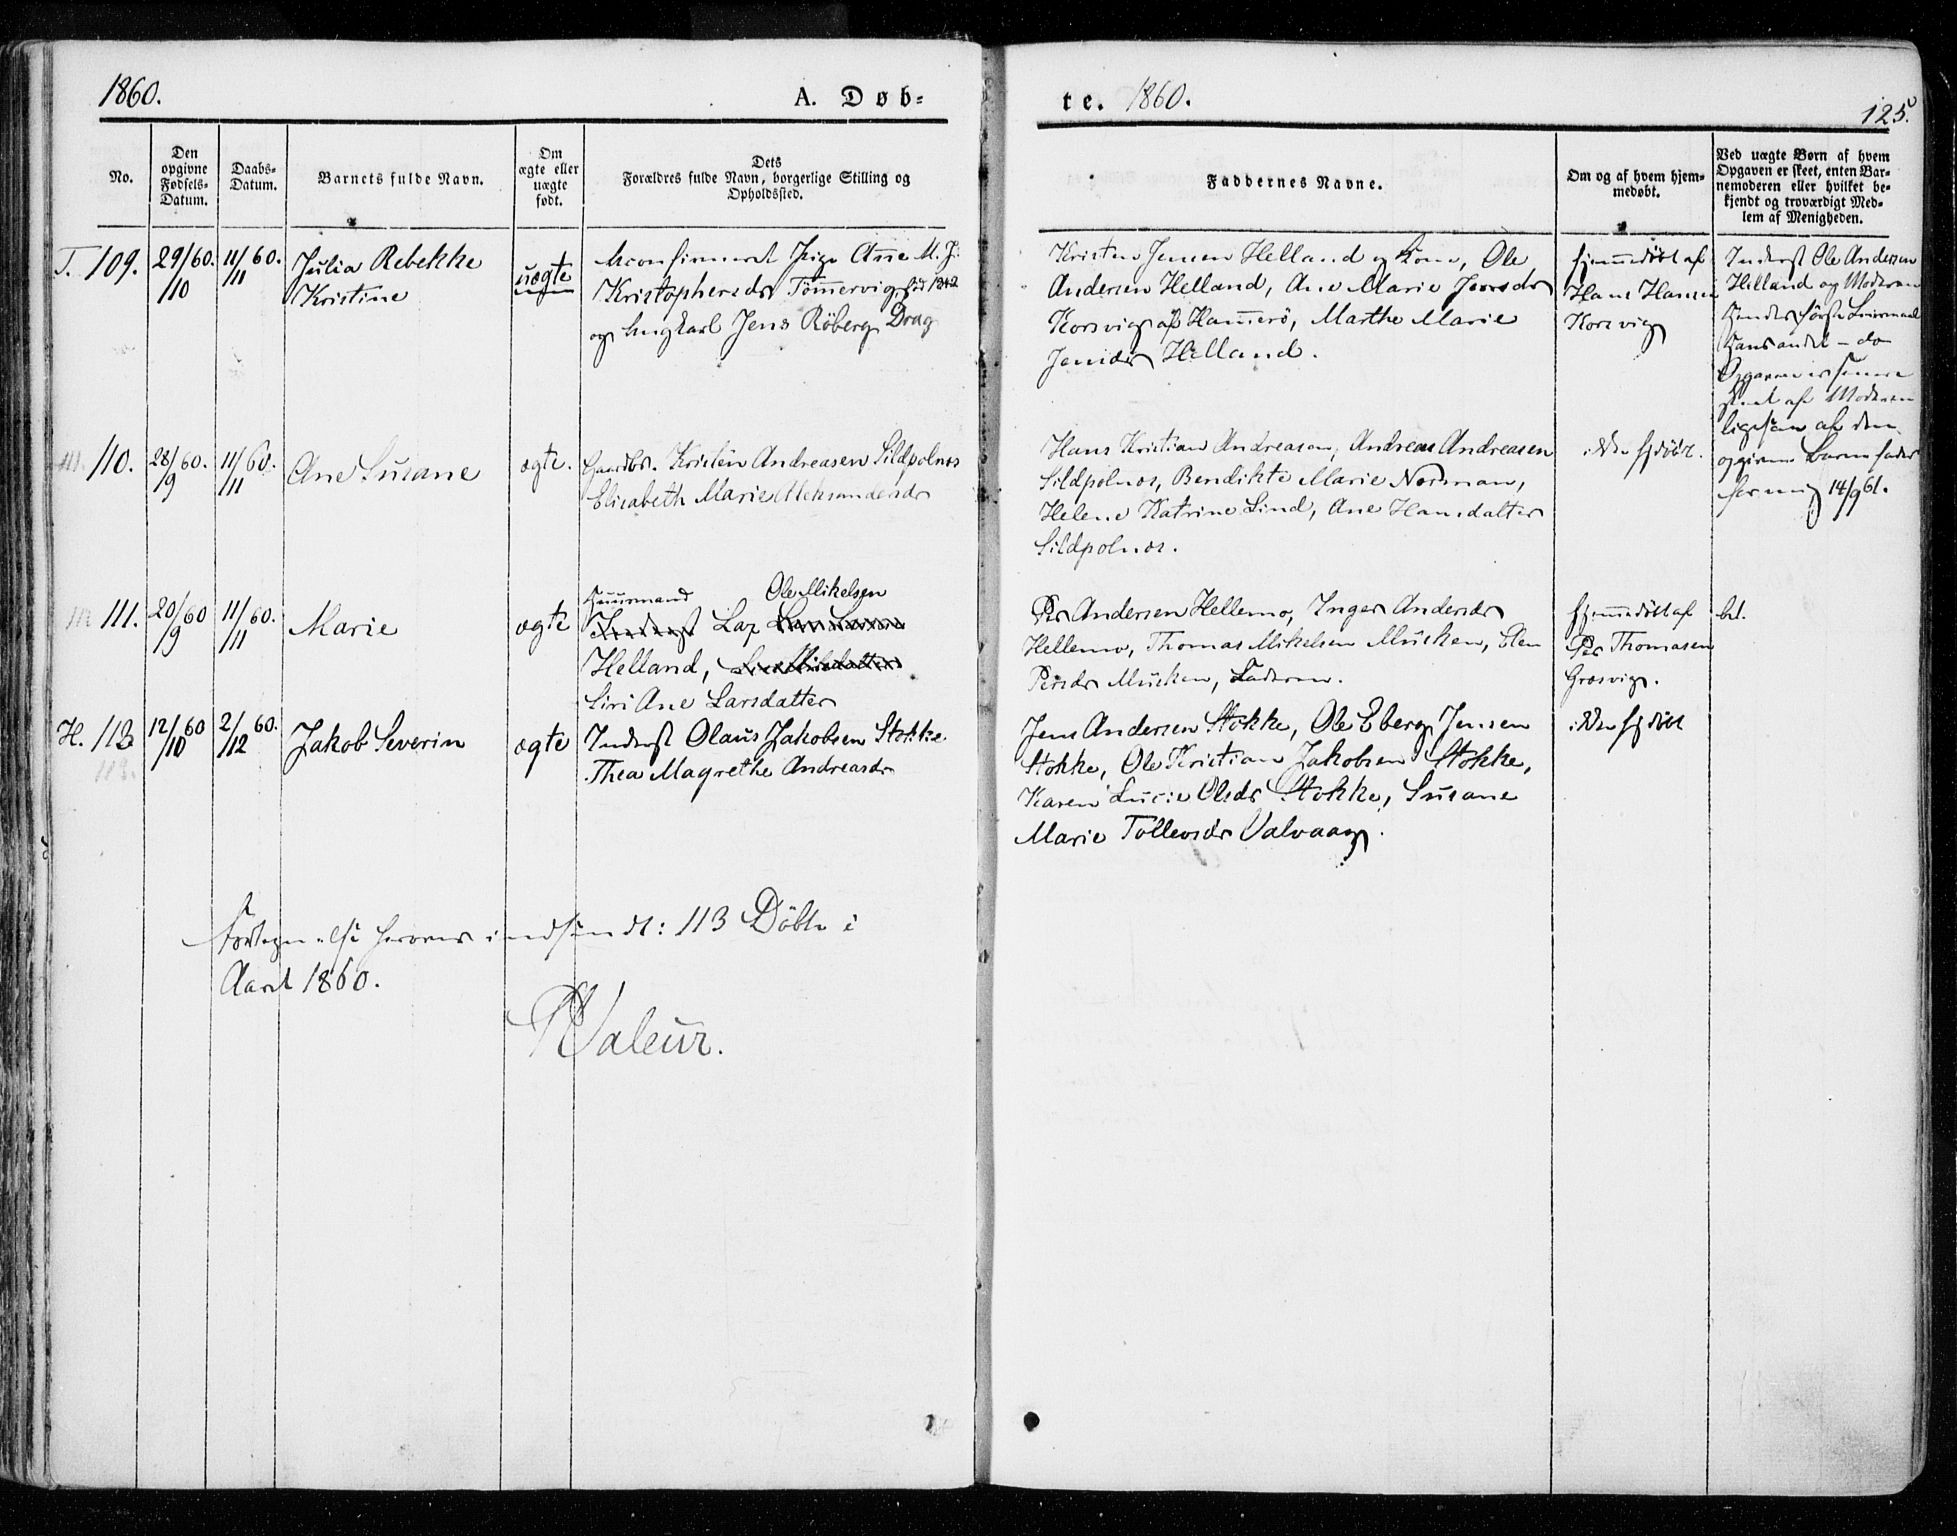 1860.
A. Døb-
te. 1860.
125.
No.
Den
opgivne
Fødsels-
Datum.
Daabs-
Datum.
Barnets fulde Navn.
Om
ægte eller
uægte
født.
Dets
Forældres fulde Navn, borgerlige Stilling og
Opholdssted.
Faddernes Navne.
Om og af hvem hjem-
medøbt.
Ved uægte Børn af hvem
Opgaven er skeet, enten Bar-
nemoderen eller hvilket be-
kjendt og troværdigt Med-
lem af Menigheden.
T. 109.
29/60.
/10
11/60.
/11
Julia Rebekke
Kristine
uægte
Ukonfirmeret Pige Ane M. J.
Kristophersdr Tömmervig, 1842
og Ungkarl Jens Röberg, Drag
Kristen Jensen Helland og Kone, Ole
Andersen Helland, Ane Marie
Korsvig af Hamerö, Marthe Marie
Jensdr Helland.
Hjemmedöbt af
Hans Hansen
Korsvig
Inderst Ole Andersen
Helland og Moderen
Hendes förste Leiermaal
Hans andet - do
Opgaven er senere
skeet af Moderen
ligesom af den
opgivne Barnefader
for mig 14/9 61.
110.
28/60.
/9
11/60.
/11
Ane Susane
ægte.
Gaardbr. Kristen Andreasen Sildpolnes
Elisabeth Marie Aleksandersdr
Hans Kristian Andreasen, Andreas Andreasen
Sildpolnes, Bendikte Marie Norsman,
Helene Katrine Lind, Ane Hansdatter
Sildpolnes.
ikke Hjdöbt.
111.
20/60
/9
11/60.
/11
Marie
ægte
Huusmand Ole Mikelsen
Inderst Lap
Helland,
Siri Ane Larsdatter
Per Andersen Hellemo, Inger Andersdr
Hellemo, Thomas Mikelsen Müsken, Elen
Persdr Müsken, Faderen.
Hjemmedöbt af
Per Thomasen
Grosvig.
bet.
H. 113
113.
12/60
/10
2/60.
/12
Jakob Severin
ægte
Inderst Olaus Jakobsen Stokke
Thea Magrethe Andreasdr
Jens Andersen Stokke, Ole Eberg Jensen
Stokke, Ole Kristian Jakobsen Stokke,
Karen Lucie Olsdr Stokke, Susane
Marie Tollevsdr Valvaag.
ikke Hjdöbt
Fortegnelse herover indsendt: 113 Döbte i
Aaret 1860.
Valeur.